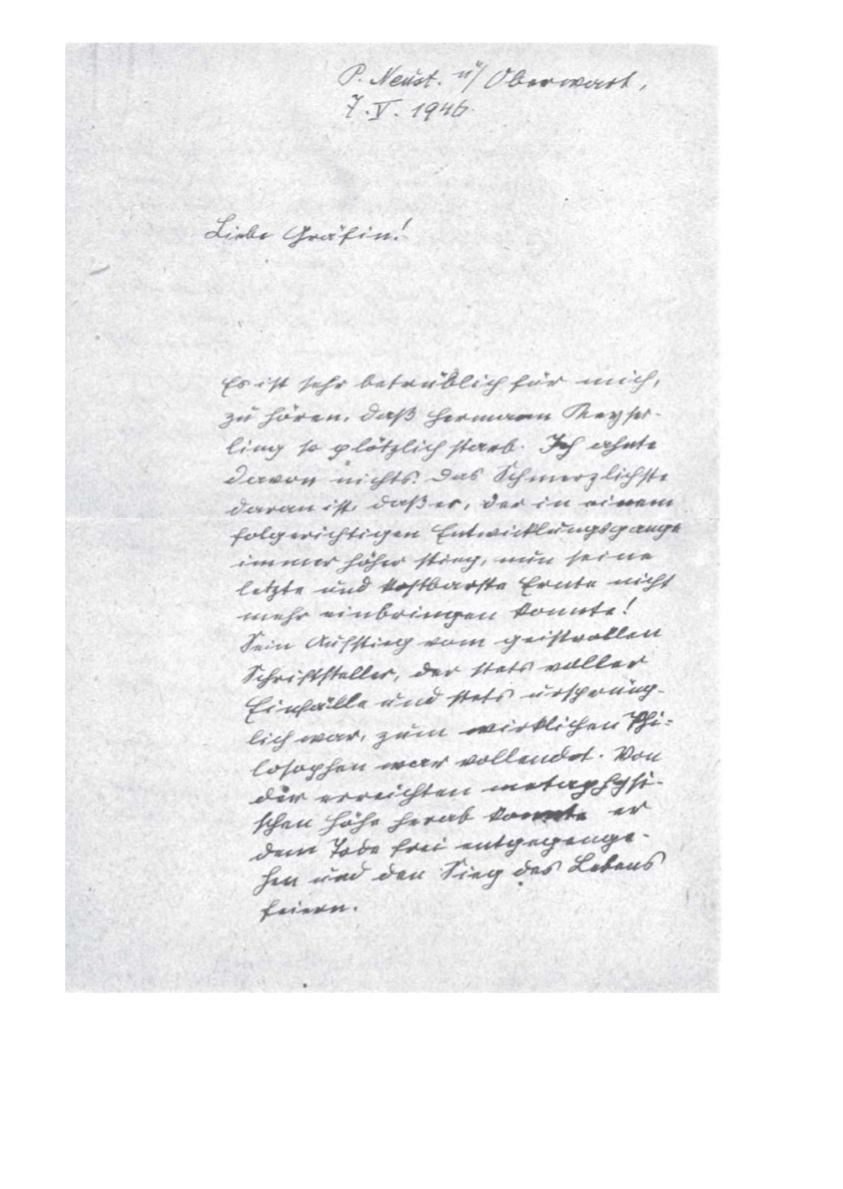 P. Neust. ü/ Oberwart,
7. V. 1946.
Liebe Gräfin!
Es ist sehr betrüblich für mich,
zu hören, daß Hermann Keyser-
ling so plötzlich starb. Ich ahnte
davon nichts. Das Schmerzlichste
daran ist, daß er, der in einem
folgerichtigen Entwicklungsgange
immer höher stieg, nun seine
letzte und kostbarste Ernte nicht
mehr einbringen konnte!
Sein Aufstieg vom geistvollen
Schriftsteller, der stets voller
Einfälle und stets ursprüng-
lich war, zum wirklichen Phi-
losophen war vollendet. Von
der erreichten metaphysi-
schen Höhe herab konnte er
dem Tode frei entgegenge-
hen und den Sieg des Lebens
feiern.